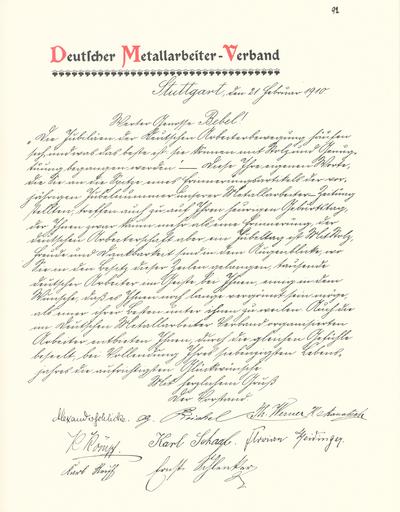 91
Deutscher Metallarbeiter-Verband
Stuttgart, den 21 Februar 1910
Werter Genosse Bebel!
Die Jubiläen der deutschen Arbeiterbewegung häufen
sich, und was das beste ist sie können mit Stolz und Genug-
tuung begangen werden — Diese Ihre eigenen Worte,
die Sie an die Spitze eines Erinnerungsartikels der vor-
jährigen Jubiläumsnummer unserer Metallarbeiter-Zeitung
stellten, treffen auch zu auf Ihren heurigen Geburtstag,
der Ihnen zwar kaum mehr als eine Erinnerung, der
deutschen Arbeiterschaft aber ein Jubeltag ist. Mit Stolz,
Freude und Dankbarkeit sind in dem Augenblicke, wo
Sie in den Besitz dieser Zeilen gelangen, tausende
deutscher Arbeiter im Geiste bei Ihnen, einig in dem
Wunsche, daß es Ihnen noch lange vergönnt sein möge,
als einer ihrer Besten unter ihnen zu weilen. Auch die
im Deutschen Metallarbeiter-Verband organisierten
Arbeiter entbieten Ihnen, durch die gleichen Gefühle
beseelt, bei Vollendung Ihres siebenzigsten Lebens-
jahres die aufrichtigsten Glückwünsche
Mit herzlichem Gruß
Der Vorstand
Alexander Schlicke. G. Reichel Th. Werner
Karl Schagl.
Karl Ernst Schlenker